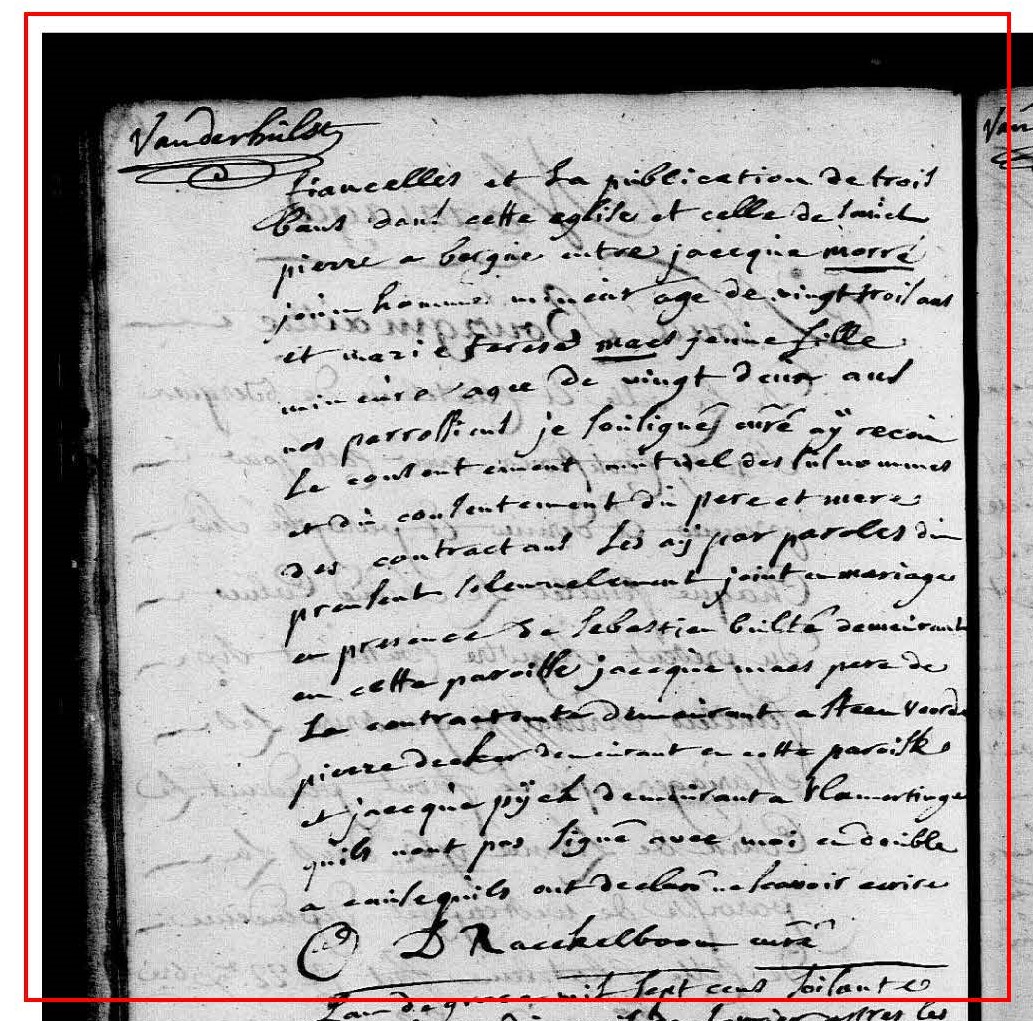 Vanderhulst
fiancelles et La publication de trois
bans dans cette eglise et celle de
pierre a bergue entre jacque morré
jouin homme mineur age de vingt trois ans
et marie terese maes jenne fille
mineure agee de vingt deux ans
nos parrossiens je sousigné curé aÿ receu
Le consentement mutuel des susnommes
et du consentement du pere et mere
des contractans Les aÿ par paroles du
present solemnelement joint en mariage
en presence de sebastien builte demeurant
en cette paroisse jacque maes pere de
La contractante demeurant a steenvoorde
pierre decker demeurant en cette paroisse
et jacque pÿck demeurant a vlamertinge
quils nont pas signé avec moi en double
a cause quils ont declaré ne scavoir ecrire
D Raeckelboom curé
Lan de grace mil sept cens soisante